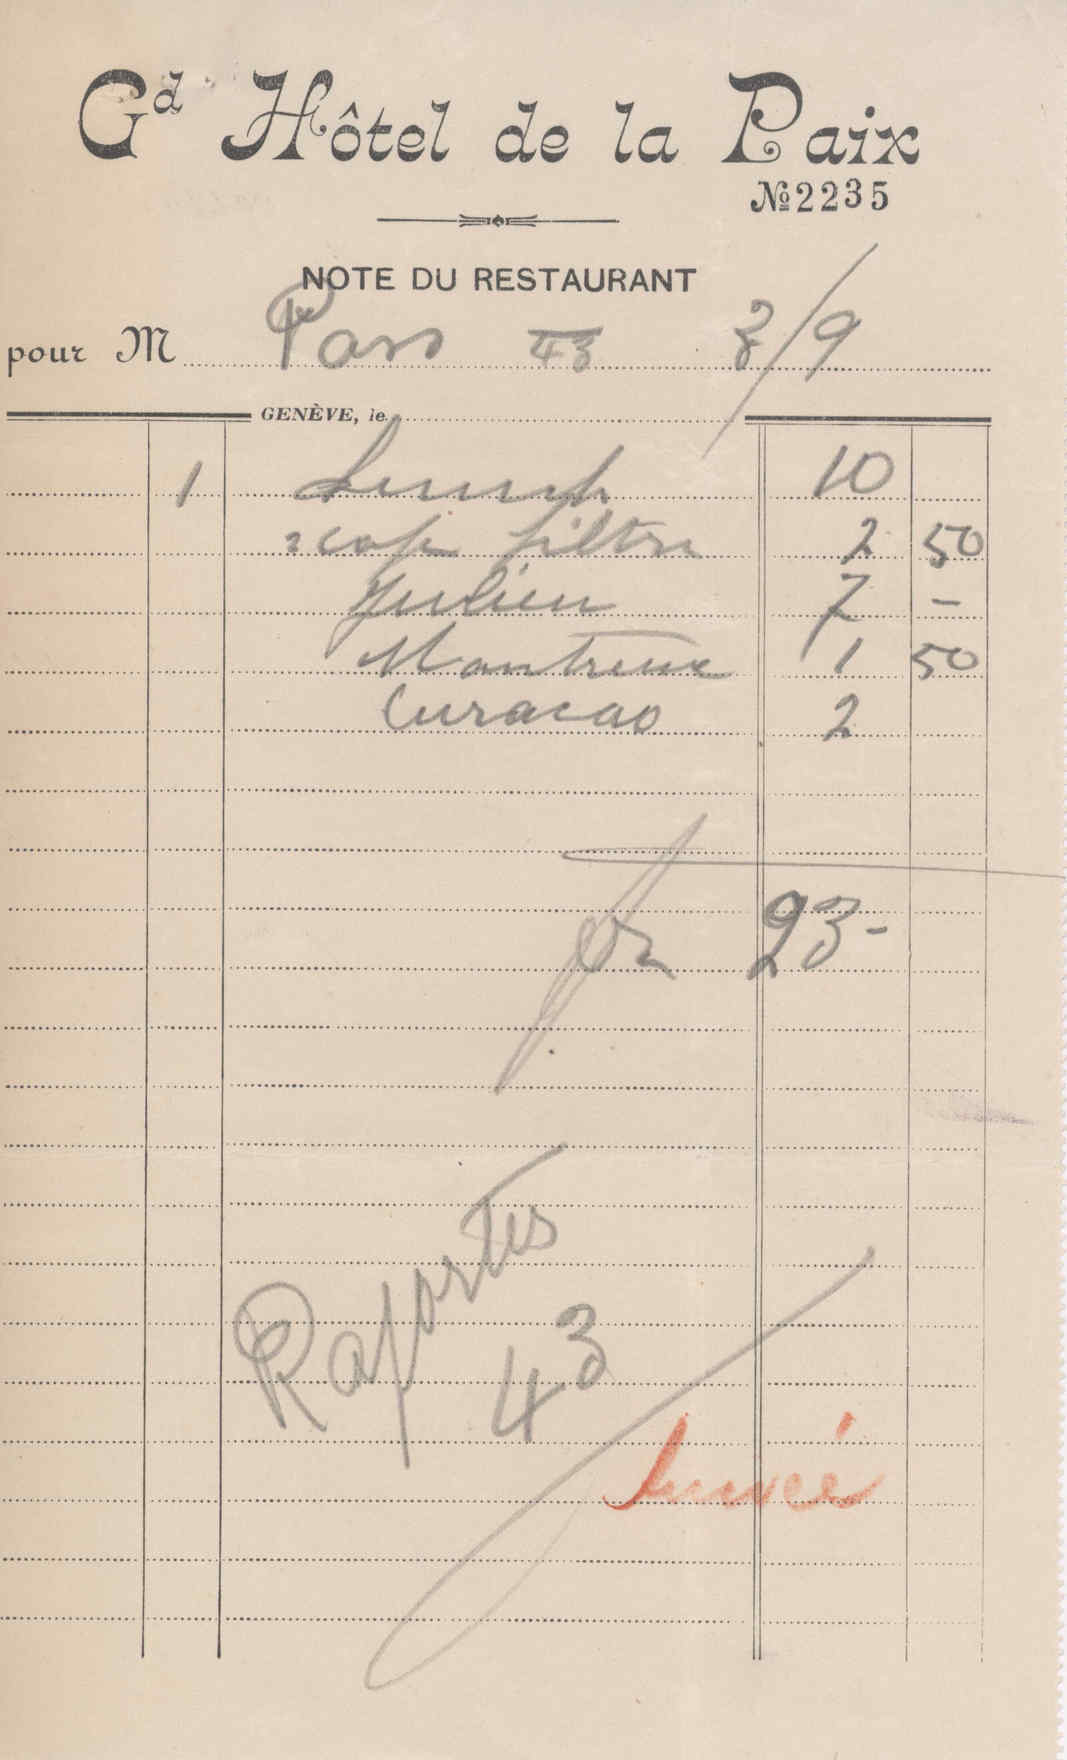 Gd Hôtel de la Paix
№ 2235
NOTE DU RESTAURANT
pour M Pass 43 3/9
GENÈVE, le
1 Lunch 10
2 caf filtre 2 50
Julien 7 -
Montreux 1 50
Curacao 2
frs 23-
43